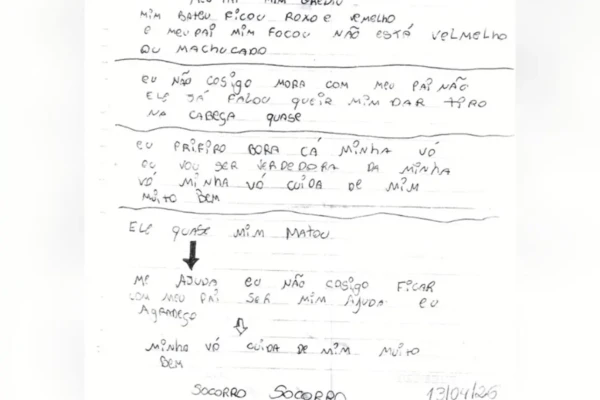 MEU PAI MIM
MIM BATEU FICOU ROXO E VEMELHO
E MEU PAI MIM FOCOU NÃO ESTÁ VELMELHO
OU MACHUCADO
EU NÃO COSIGO MORA COM MEU PAI NÃO
ELE JÁ FALOU QUEIR MIM DAR TIRO
NA CABEÇA QUASE
EU PRIFIRO BORA CÁ MINHA VÓ
OU VOU SER VERDEDORA DA MINHA
VÓ MINHA VÓ CUIDA DE MIM
MUITO BEM
ELE QUASE MIM MATOU
ME AJUDA EU NÃO COSIGO FICAR
COM MEU PAI SER MIM AJUDA EU
AGRADEÇO
MINHA VÓ CUIDA DE MIM MUITO
BEM
SOCORRO SOCORRO 13/04/26